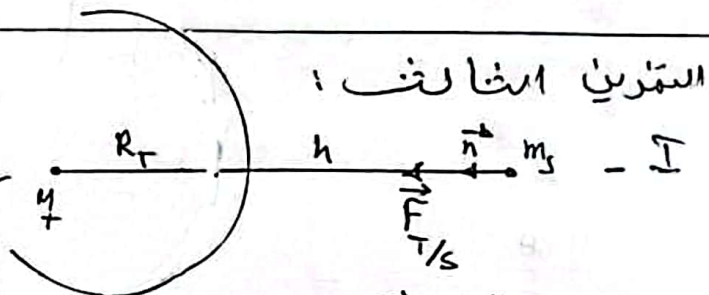 التمرين الثالث :
I -
R_T h n⃗ m_s
M_T
F⃗_T/S